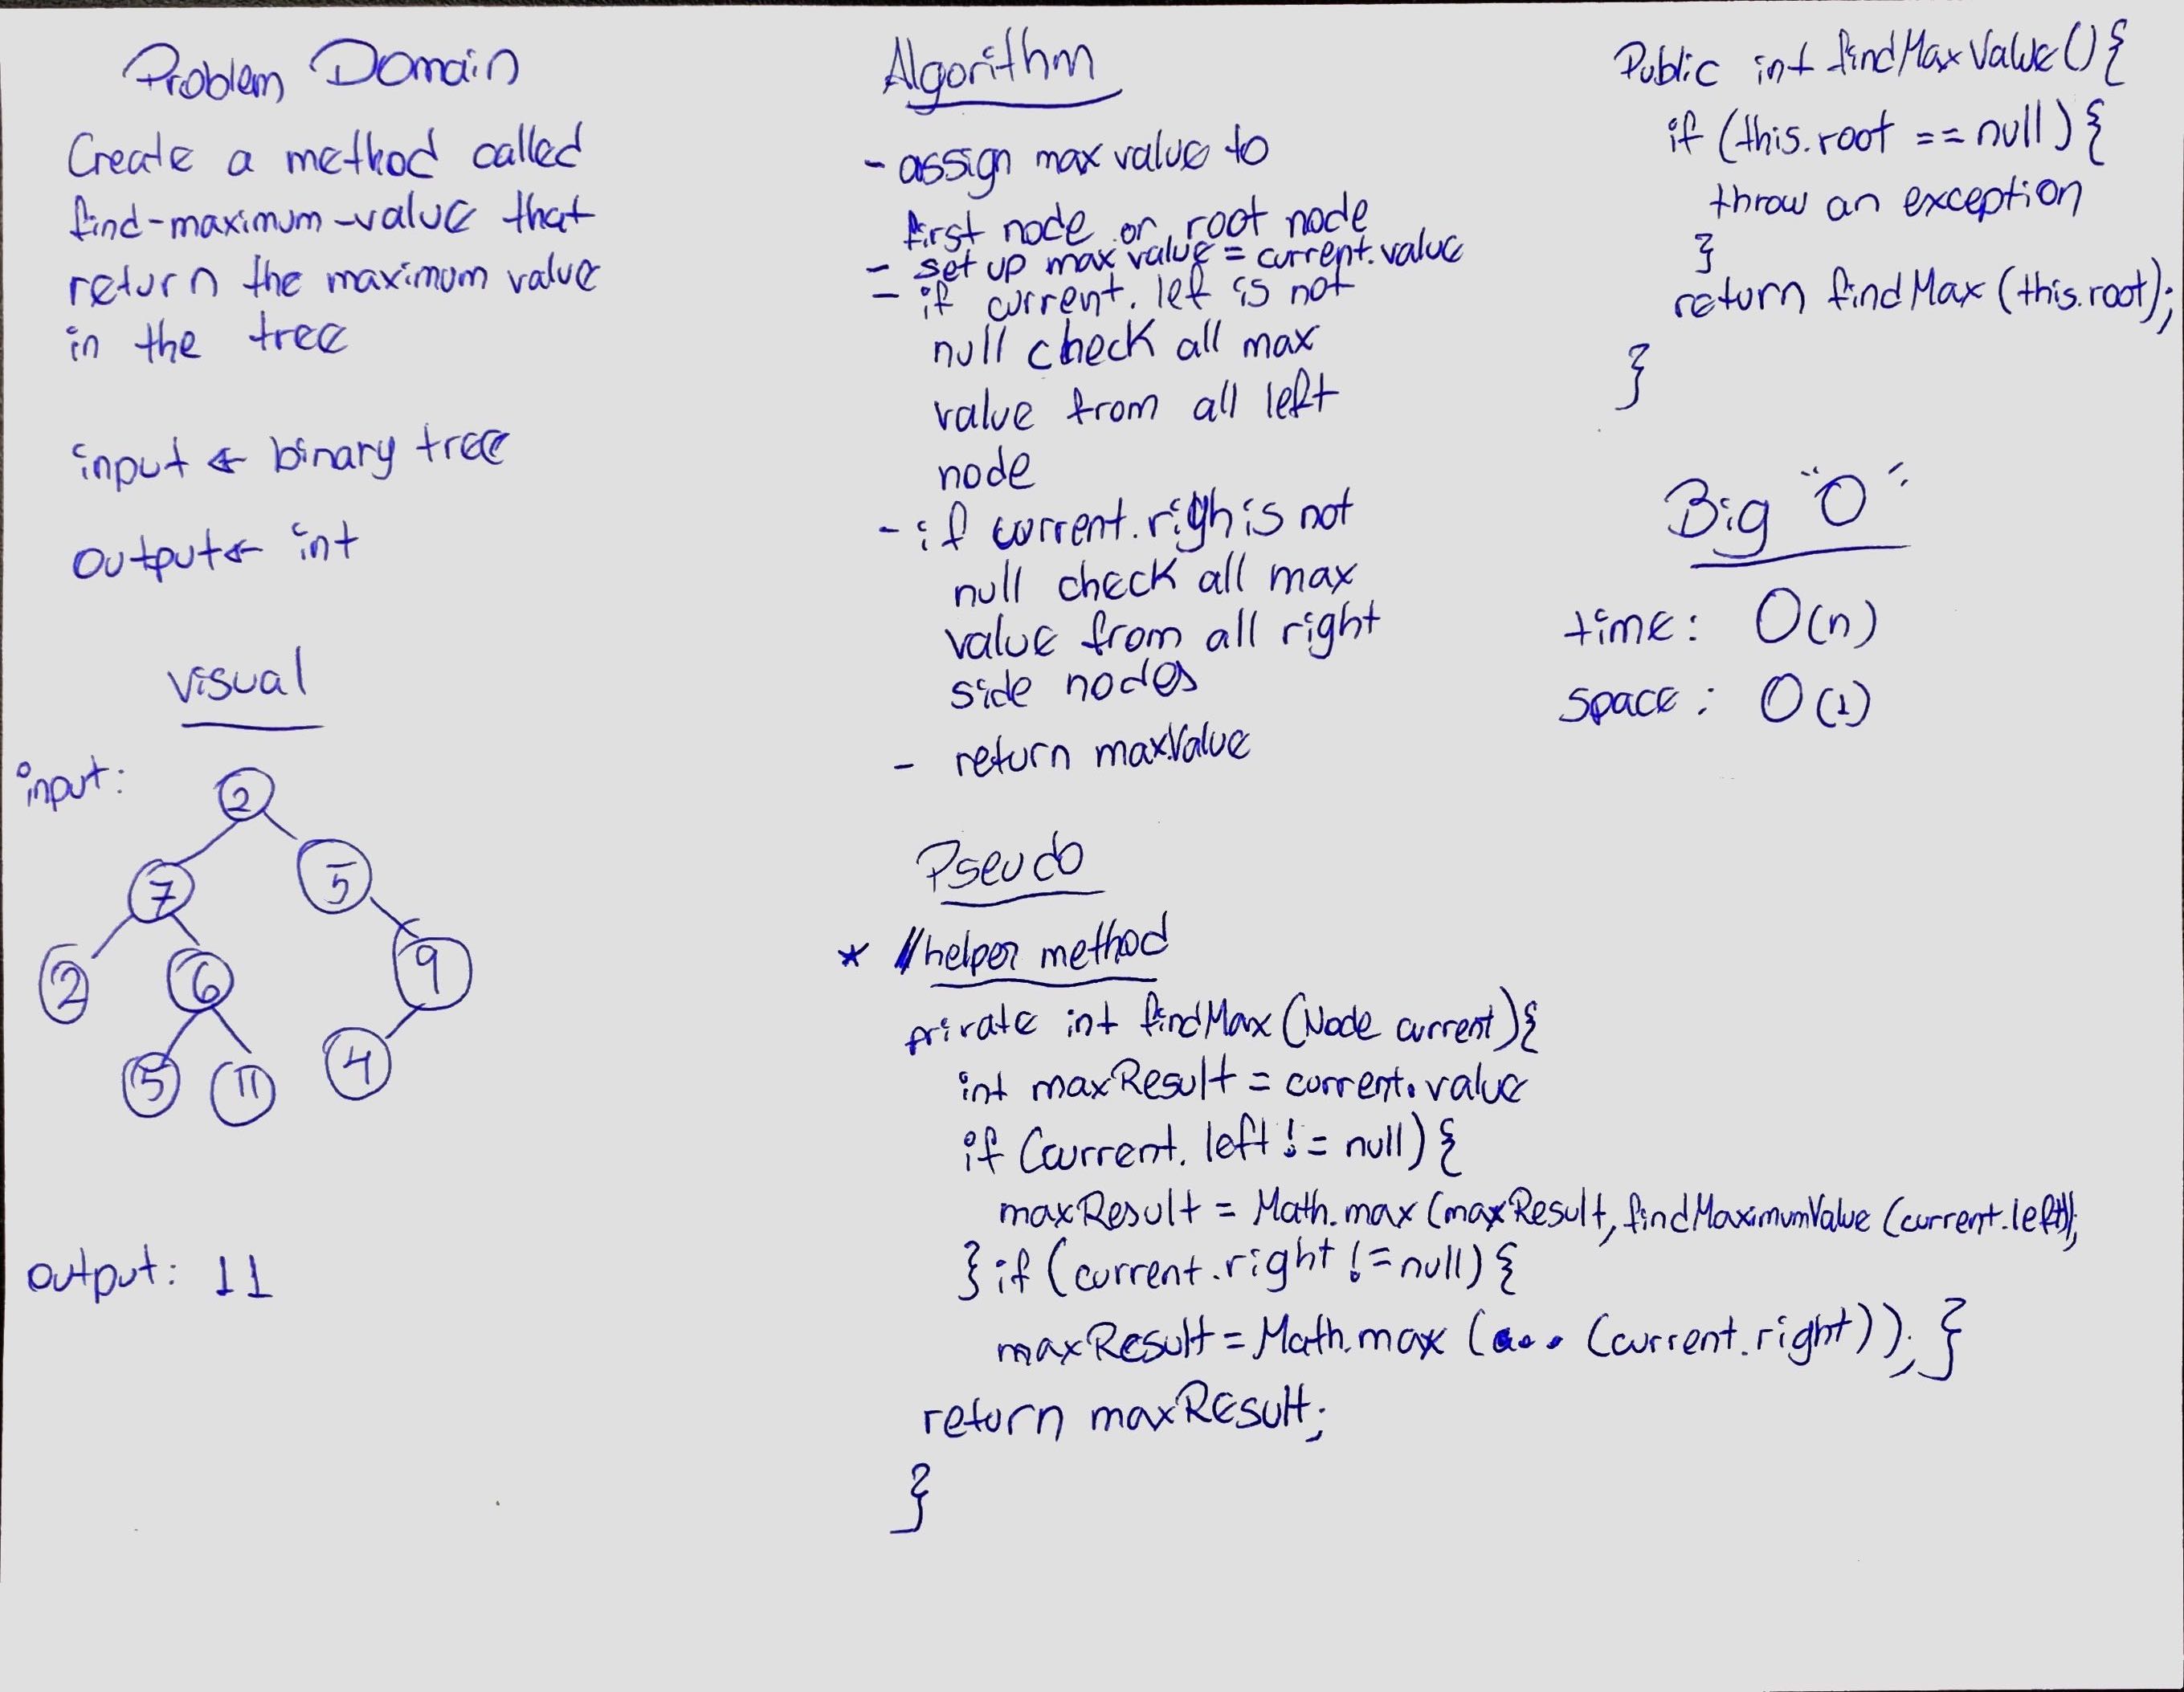 Problem Domain
Create a method called
find-maximum-value that
return the maximum value
in the tree
input ← binary tree
output ← int
visual
input:
2
7 5
2 6 9
5 11 4
output: 11
Algorithm
- assign max value to
first node or root node
- set up max value = current.value
- if current.lef is not
null check all max
value from all left
node
- if current.righ is not
null check all max
value from all right
side nodes
- return maxValue
Pseudo
* //helper method
private int findMax(Node current){
int maxResult = current.value
if (current.left != null){
maxResult = Math.max(maxResult, findMaximumValue(current.left));
} if (current.right != null){
maxResult = Math.max(... (current.right)); }
return maxREsult;
}
Public int findMaxValue(){
if (this.root == null){
throw an exception
}
return findMax(this.root);
}
Big "O"
time: O(n)
space: O(1)